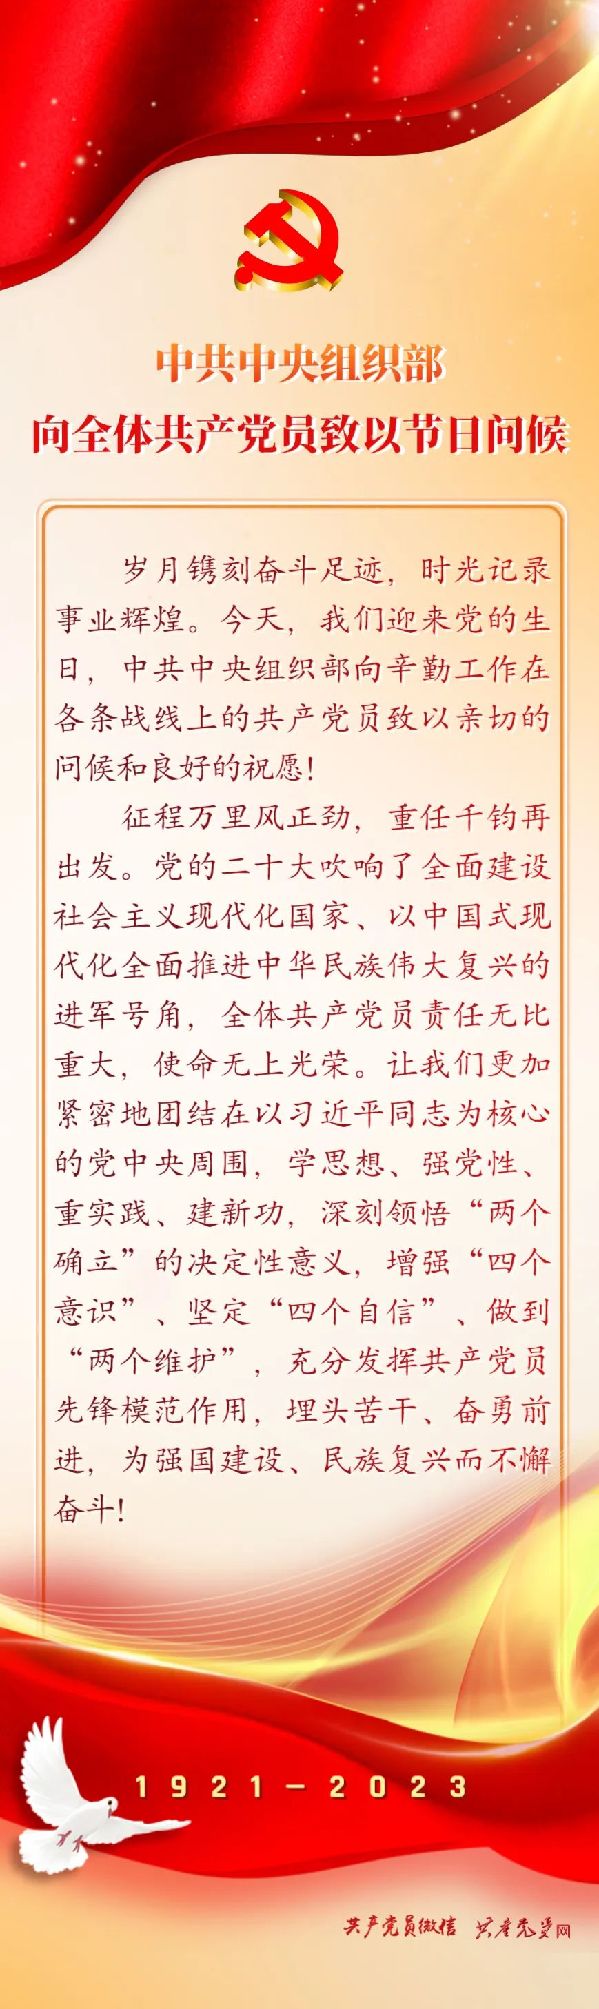 中共中央组织部
向全体共产党员致以节日问候
岁月镌刻奋斗足迹，时光记录
事业辉煌。今天，我们迎来党的生
日，中共中央组织部向辛勤工作在
各条战线上的共产党员致以亲切的
问候和良好的祝愿！
征程万里风正劲，重任千钧再
出发。党的二十大吹响了全面建设
社会主义现代化国家、以中国式现
代化全面推进中华民族伟大复兴的
进军号角，全体共产党员责任无比
重大，使命无上光荣。让我们更加
紧密地团结在以习近平同志为核心
的党中央周围，学思想、强党性、
重实践、建新功，深刻领悟“两个
确立”的决定性意义，增强“四个
意识”、坚定“四个自信”、做到
“两个维护”，充分发挥共产党员
先锋模范作用，埋头苦干、奋勇前
进，为强国建设、民族复兴而不懈
奋斗！
1921－2023
共产党员微信 共产党员网